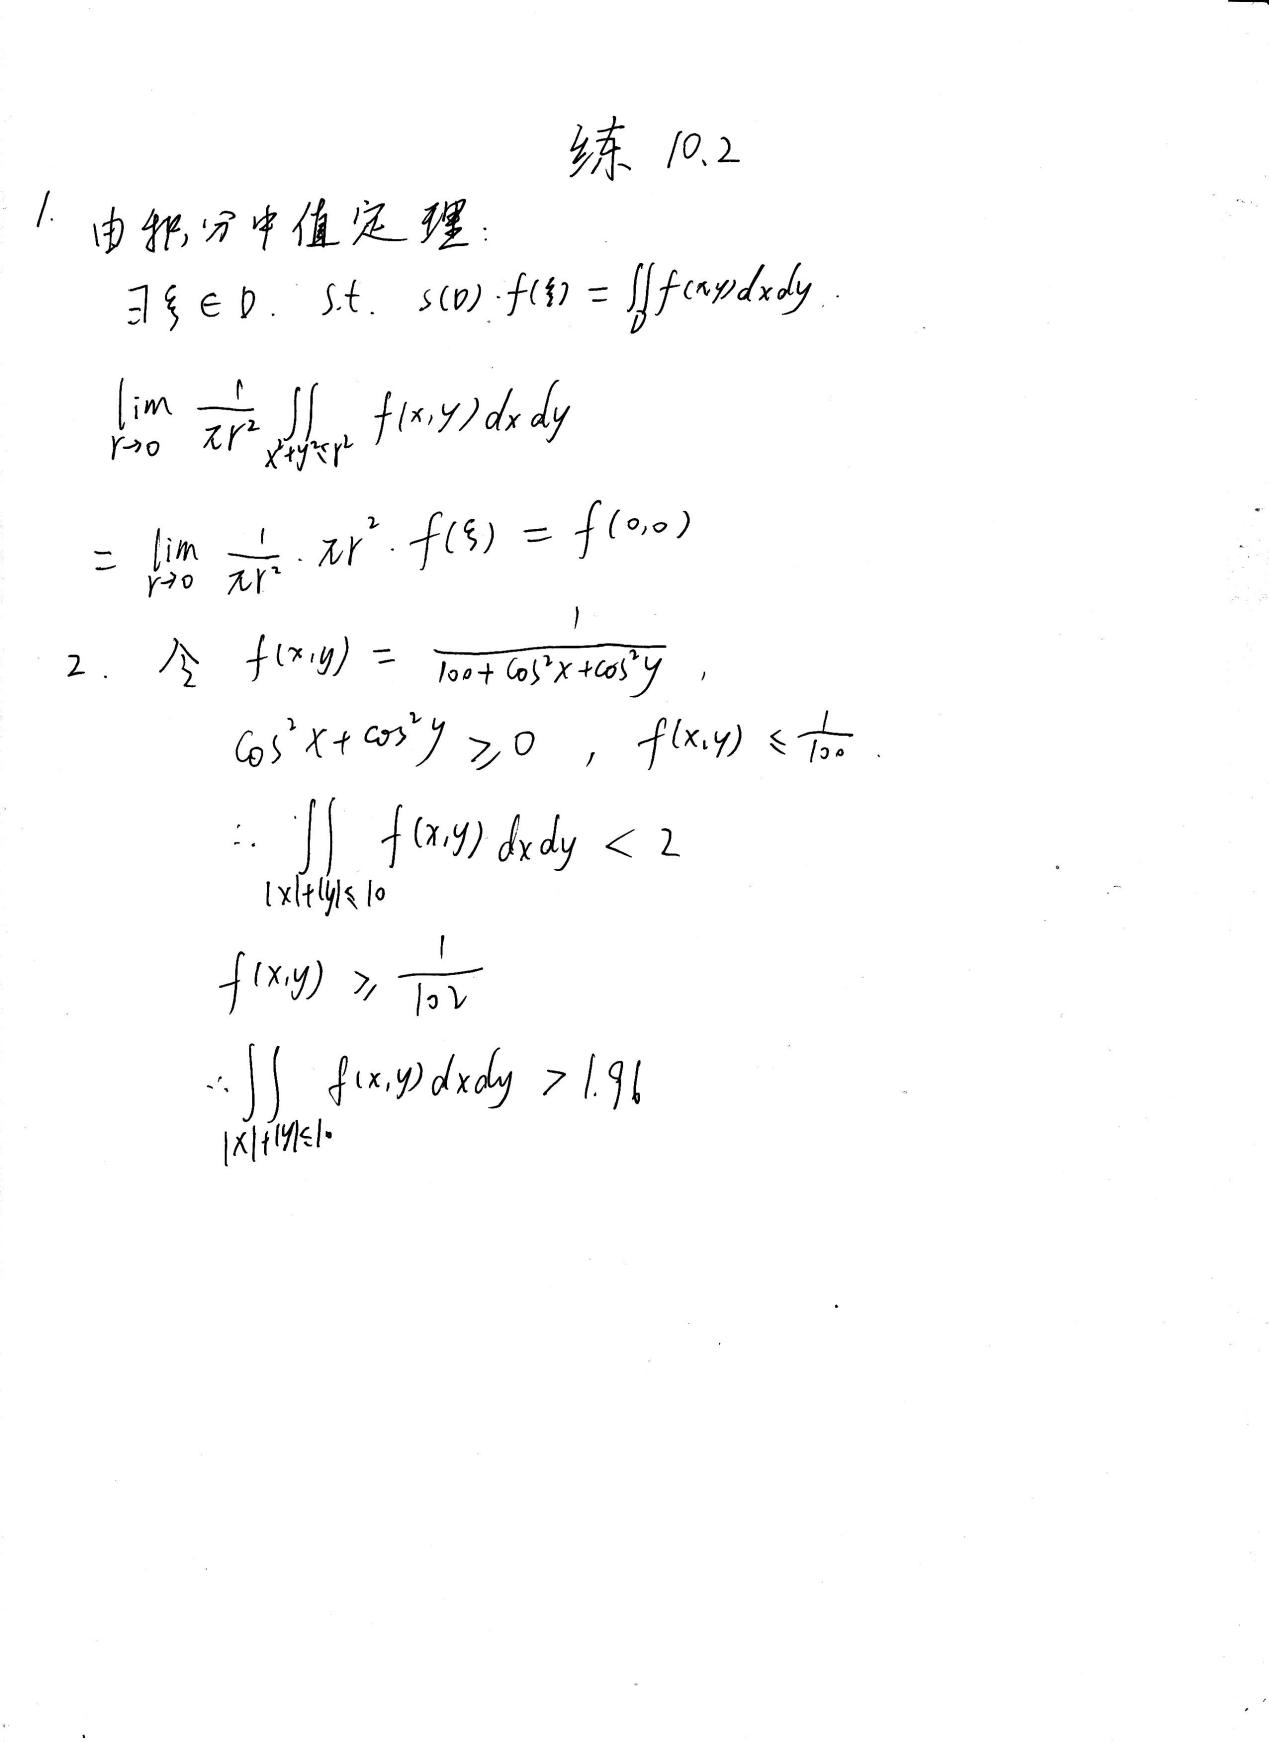 练 10.2
1. 由积分中值定理:
∃ξ∈D. s.t. s(D)·f(ξ) = ∬_D f(x,y)dxdy.
lim_{r→0} 1/(πr²) ∬_{x²+y²≤r²} f(x,y)dxdy
= lim_{r→0} 1/(πr²) · πr² · f(ξ) = f(0,0)
2. 令 f(x,y) = 1/(100+cos²x+cos²y),
cos²x+cos²y ≥ 0 , f(x,y) ≤ 1/100 .
∴ ∬_{|x|+|y|≤10} f(x,y) dxdy < 2
f(x,y) ≥ 1/102
∴ ∬_{|x|+|y|≤10} f(x,y)dxdy > 1.96